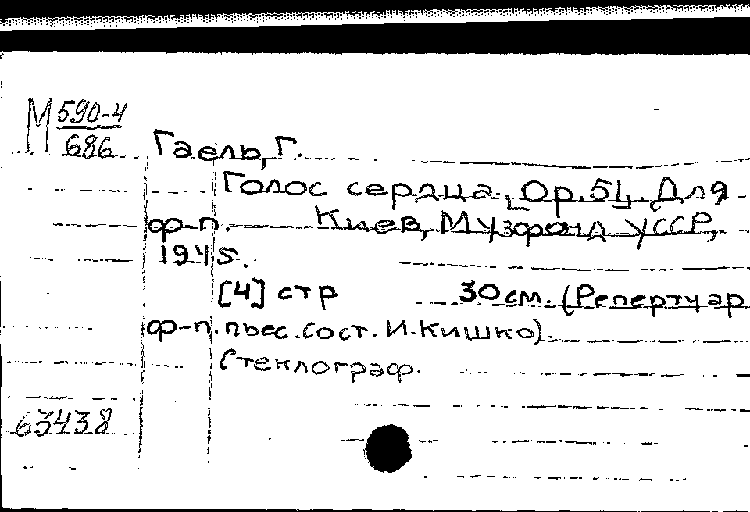 М 590-4
686
Гаель, Г.
Голос сердца. Ор.51. Для
ф-п. Киев, Музфонд УССР,
1945.
[4] стр 30 см. (Репертуар
ф-п. пьес. Сост. И. Кишко).
Стеклограф.
63438